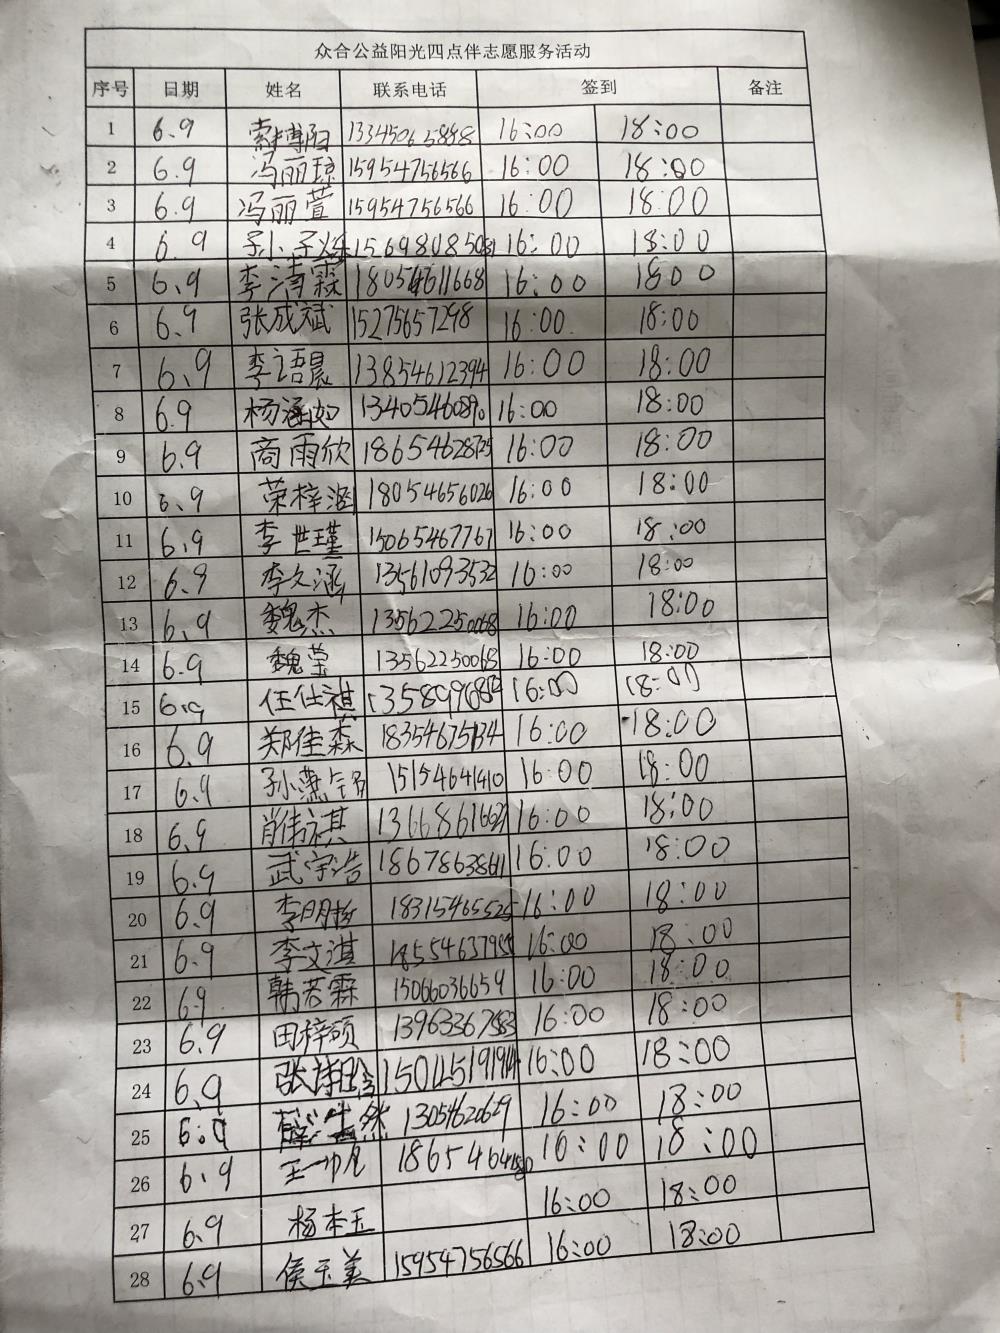 众合公益阳光四点伴志愿服务活动
序号 日期 姓名 联系电话 签到 备注
1 6.9 索博阳 16:00 18:00
2 6.9 冯丽琼 15954756566 16:00 18:00
3 6.9 冯丽萱 15954756566 16:00 18:00
4 6.9 16:00 18:00
5 6.9 李清霖 18054611668 16:00 1800
6 6.9 张成斌 15275657298 16:00 18:00
7 6.9 李语晨 13854612394 16:00 18:00
8 6.9 杨涵如 16:00 18:00
9 6.9 商雨欣 16:00 18:00
10 6.9 荣梓涵 18054656026 16:00 18:00
11 6.9 李世瑾 15065467767 16:00 18:00
12 6.9 李文涵 13561093532 16:00 18:00
13 6.9 魏杰 13562250068 16:00 18:00
14 6.9 魏莹 13562250068 16:00 18:00
15 6.9 任仕祺 16:00 18:00
16 6.9 郑佳森 18354675134 16:00 18:00
17 6.9 15154641410 16:00 18:00
18 6.9 肖伟祺 16:00 18:00
19 6.9 武宇浩 18678638611 16:00 18:00
20 6.9 18315465525 16:00 18:00
21 6.9 李文淇 16:00 18:00
22 6.9 韩若霖 15066036659 16:00 18:00
23 6.9 田梓硕 16:00 18:00
24 6.9 16:00 18:00
25 6.9 16:00 18:00
26 6.9 16:00 18:00
27 6.9 杨本玉 16:00 18:00
28 6.9 侯玉美 15954756566 16:00 18:00